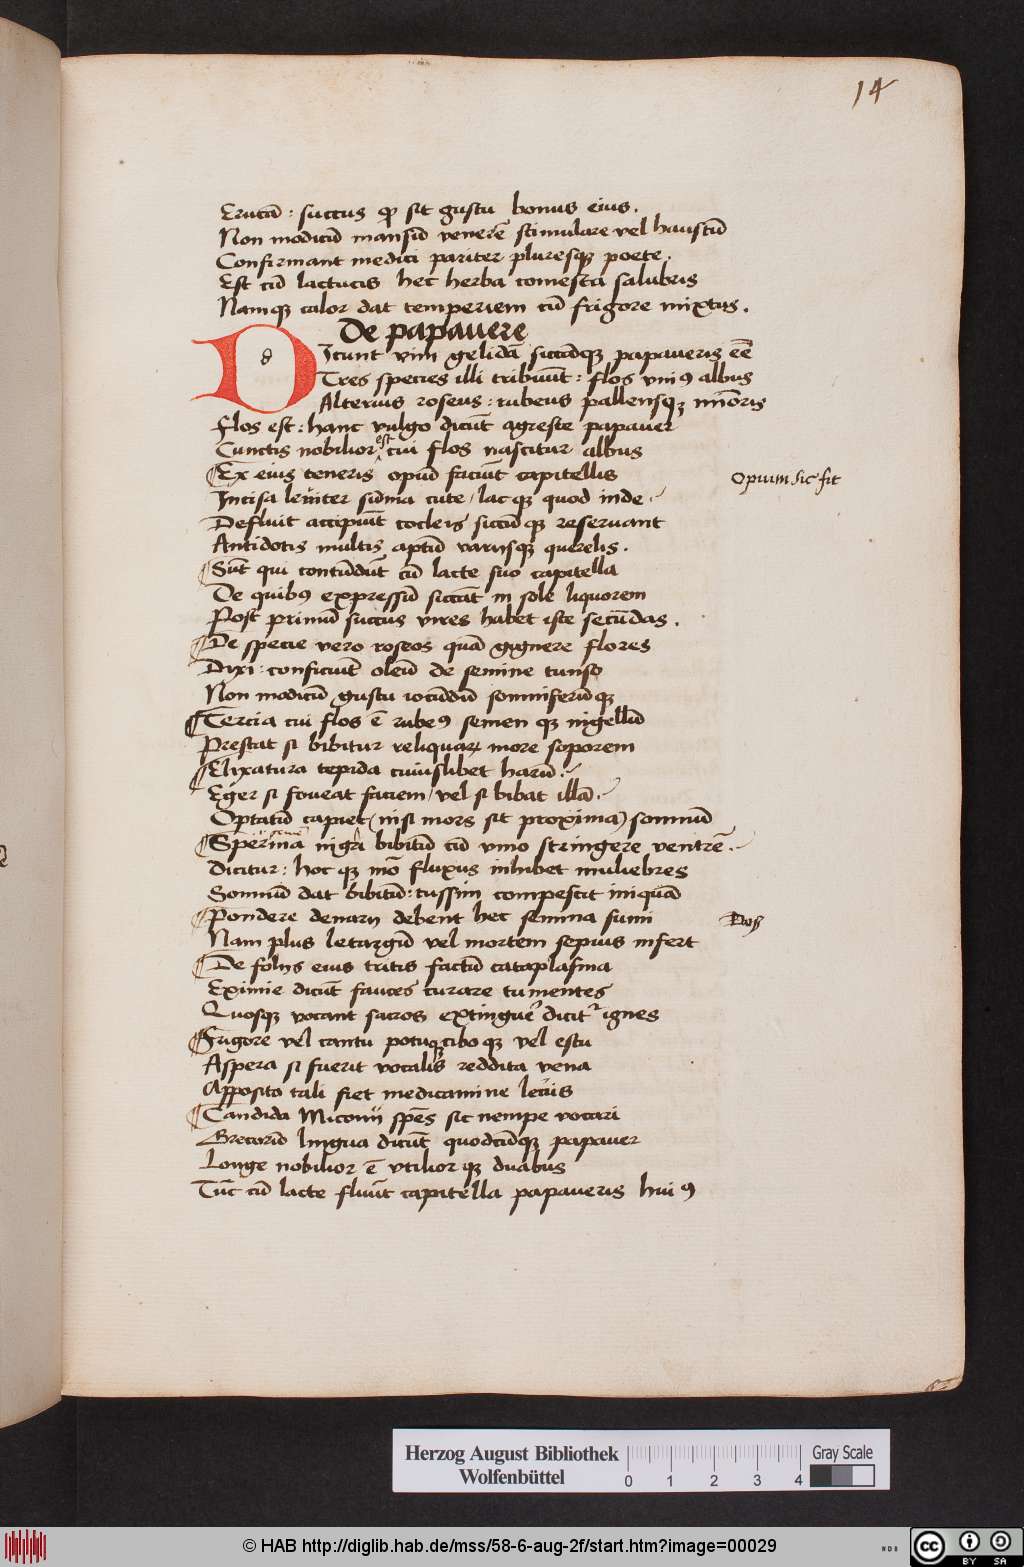 14
Erucā : succus qꝫ sit gustu bonus eius.
Non modicū mansū venerē stimulare vel haustū
Confirmant medici pariter pluresqꝫ poete.
Est cū lactucis hec herba comesta salubris
Namqꝫ calor dat temperiem cū frigore mixtus.
De papauere
Dicunt vim gelidā siccāqꝫ papaueris eē
Tres species illi tribuūt : flos vniꝯ albus
Alterius roseus : rubeus pallensqꝫ minoris
Flos est : hanc vulgo dicūt agreste papauer
Cunctis nobilior est cui flos nascitur albus
Ex eius teneris opiū faciūt capitellis
Opium sic fit
Incisa leuiter sūma cute / lac qꝫ quod inde
Defluit accipiūt cocleis siccūqꝫ reseruant
Antidotis multis aptū varijsqꝫ querelis.
Sūt qui contūdūt cū lacte suo capitella
De quibꝯ expressū siccāt in sole liquorem
Post primū succus vires habet iste secūdas.
De specie vero roseos quā gignere flores
Dixi : conficiūt oleū de semine tunso
Non modicū gustu iocūdū somniferūqꝫ
Tercia cui flos ē rubeꝯ semen qꝫ nigellū
Prestat si bibitur reliquaꝝ more soporem
Elixatura tepida cuiuslibet harū.
Eger si foueat faciem / vel si bibat illā.
Optatū capiet (nisi mors sit proxima) somnū
Sperma nigri bibitū cū vino stringere ventrē.
dicitur : hoc qꝫ mō fluxus inhibet muliebres
Somnū dat bibitū : tussim compescit iniquā
Pondere denarij debent hec semina sumi
Dosis
Nam plus letargū vel mortem sepius infert
De folijs eius tritis factū cataplasma
Eximie dicūt fauces curare tumentes
Quosqꝫ vocant sacros extinguer dicitᷣ ignes
Frigore vel cantu potuqꝫ ciboqꝫ vel estu
Aspera si fuerit vocalis reddita vena
Apposito tali fiet medicamine leuis
Candida Miconij spēs sic nempe vocari
Grecorū lingua dicūt quodcūqꝫ papauer
Longe nobilior ē vtilior qꝫ duabus
Tūc cū lacte fluūt capitella papaueris huiꝯ
Herzog August Bibliothek
Wolfenbüttel
0 1 2 3 4
Gray Scale
© HAB http://diglib.hab.de/mss/58-6-aug-2f/start.htm?image=00029
cc BY SA